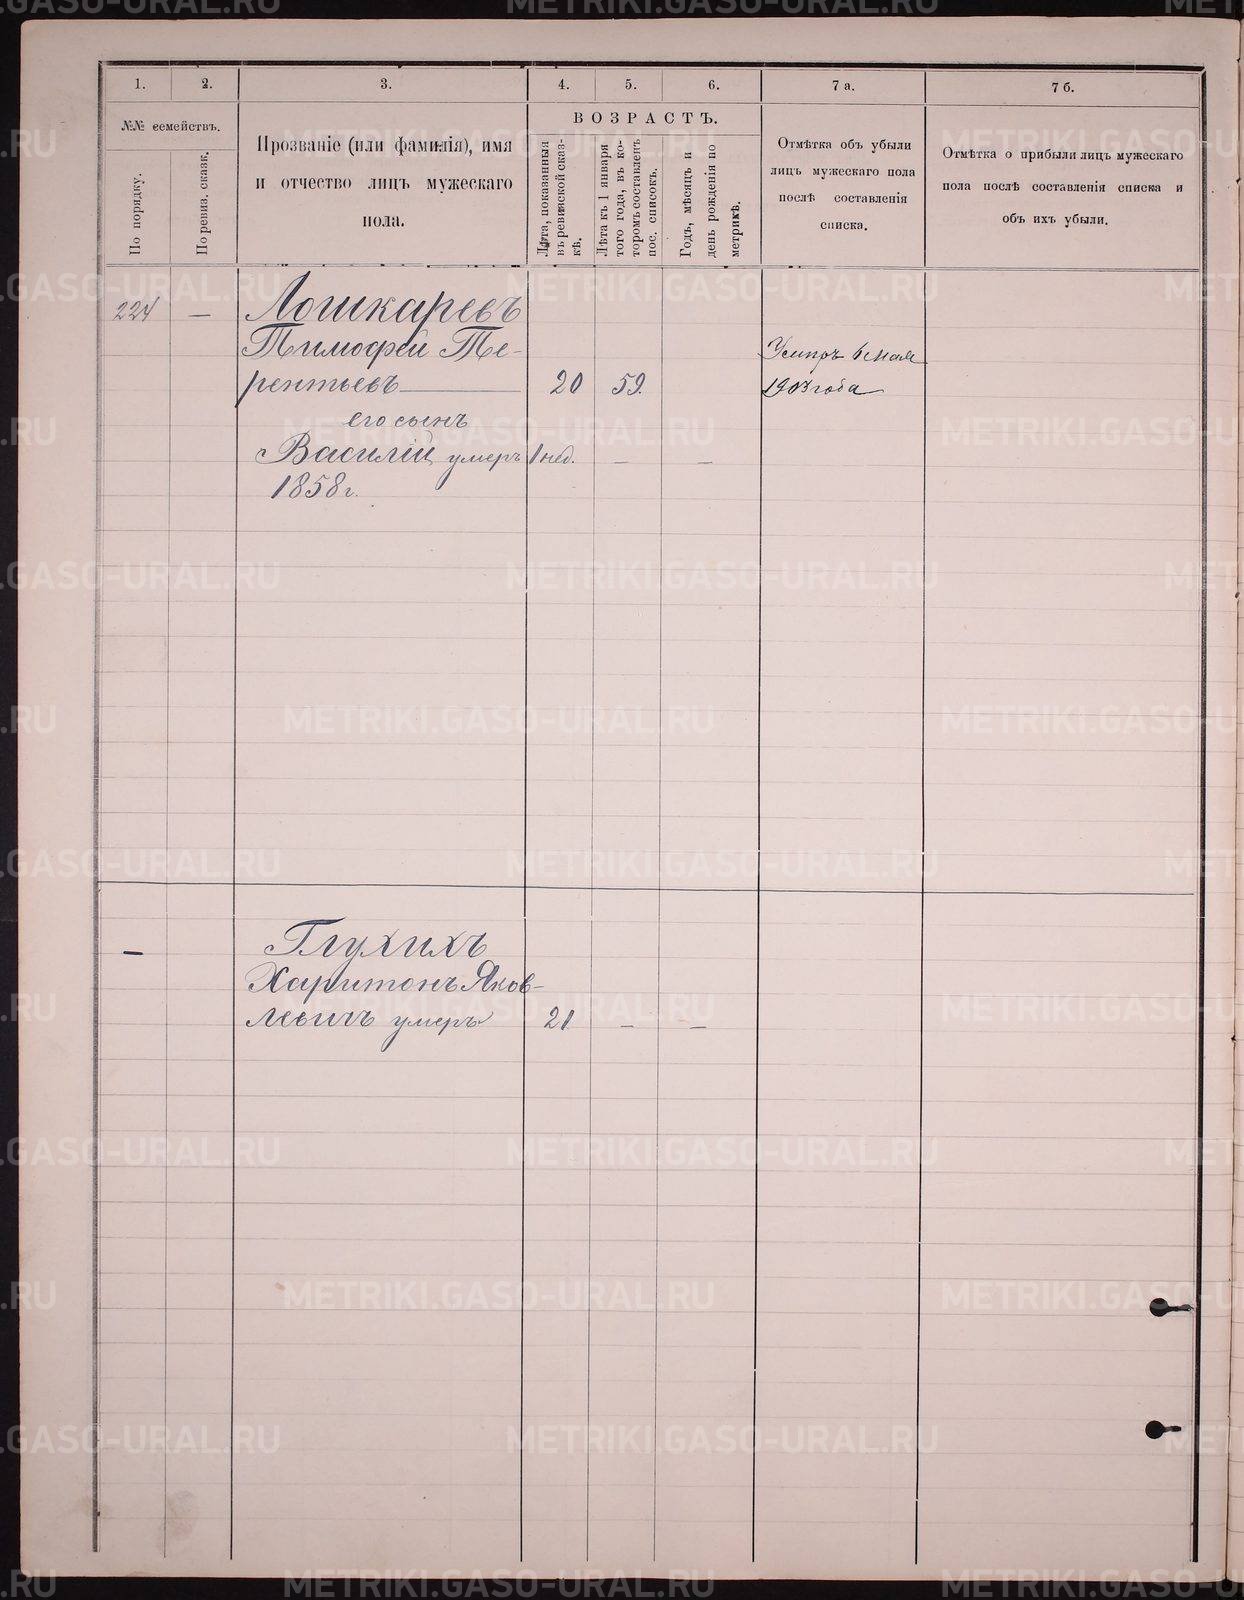 1.
2.
3.
4.
5.
6.
7 а.
7 б.
№№ семействъ.
По порядку.
По ревиз. сказк.
Прозваніе (или фамилія), имя
и отчество лицъ мужескаго
пола.
ВОЗРАСТЪ.
Лѣта, показанныя
въ ревизской сказ-
кѣ.
Лѣта къ 1 января
того года, въ ко-
торомъ составленъ
пос. списокъ.
Годъ, мѣсяцъ и
день рожденія по
метрикѣ.
Отмѣтка объ убыли
лицъ мужескаго пола
послѣ составленія
списка.
Отмѣтка о прибыли лицъ мужескаго
пола послѣ составленія списка и
объ ихъ убыли.
224 — Лошкаревъ
Тимофей Те-
рентьевъ 20 59.
Умиръ 6 мая
1903 года
его сынъ
Василій умеръ 1 нед. — —
1858 г.
— Глухихъ
Харитонъ Яков-
левичъ умеръ 21 — —
METRIKI.GASO-URAL.RU